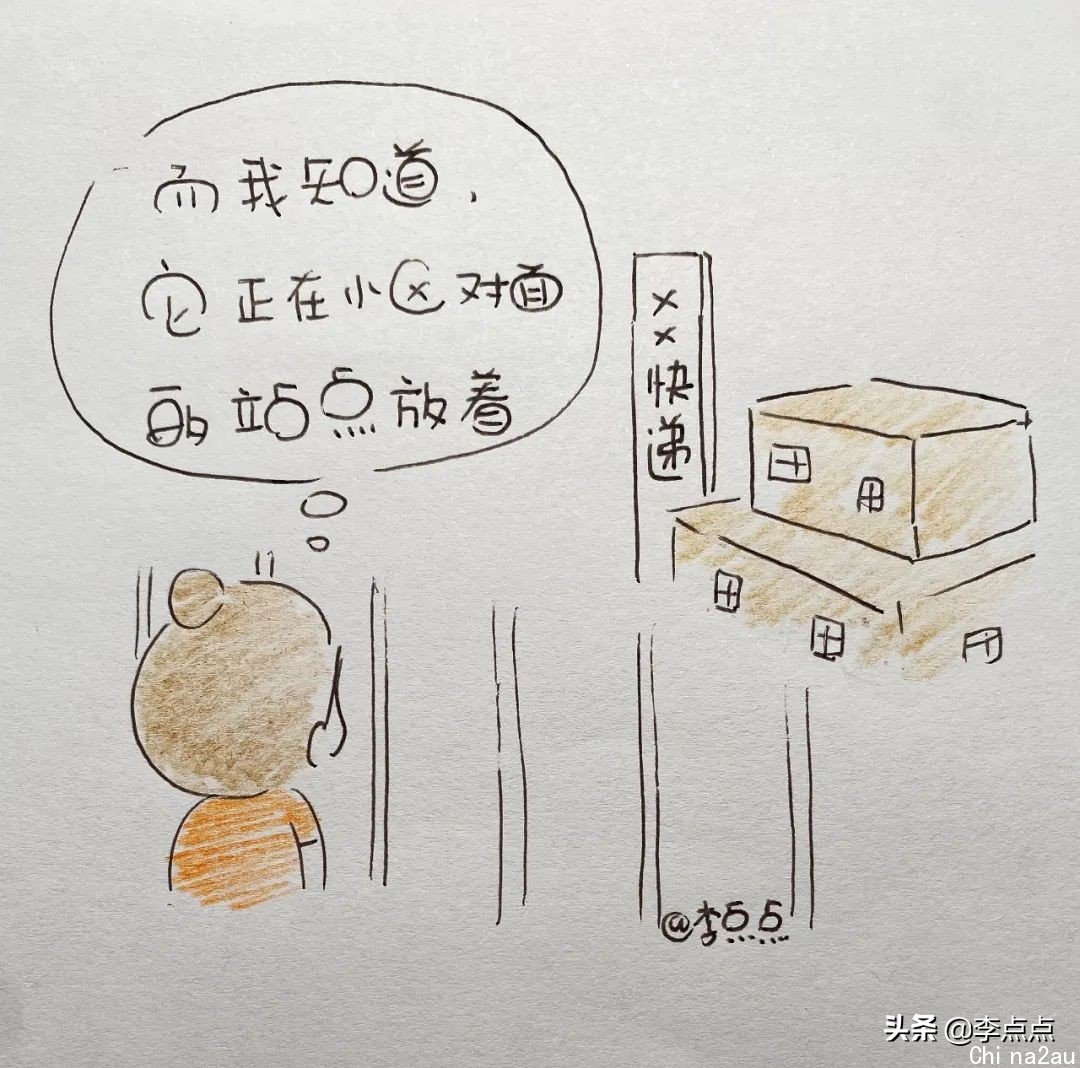 而我知道，
它正在小区对面
的站点放着
××快递
@李点点
头条 @李点点
Chi na2au